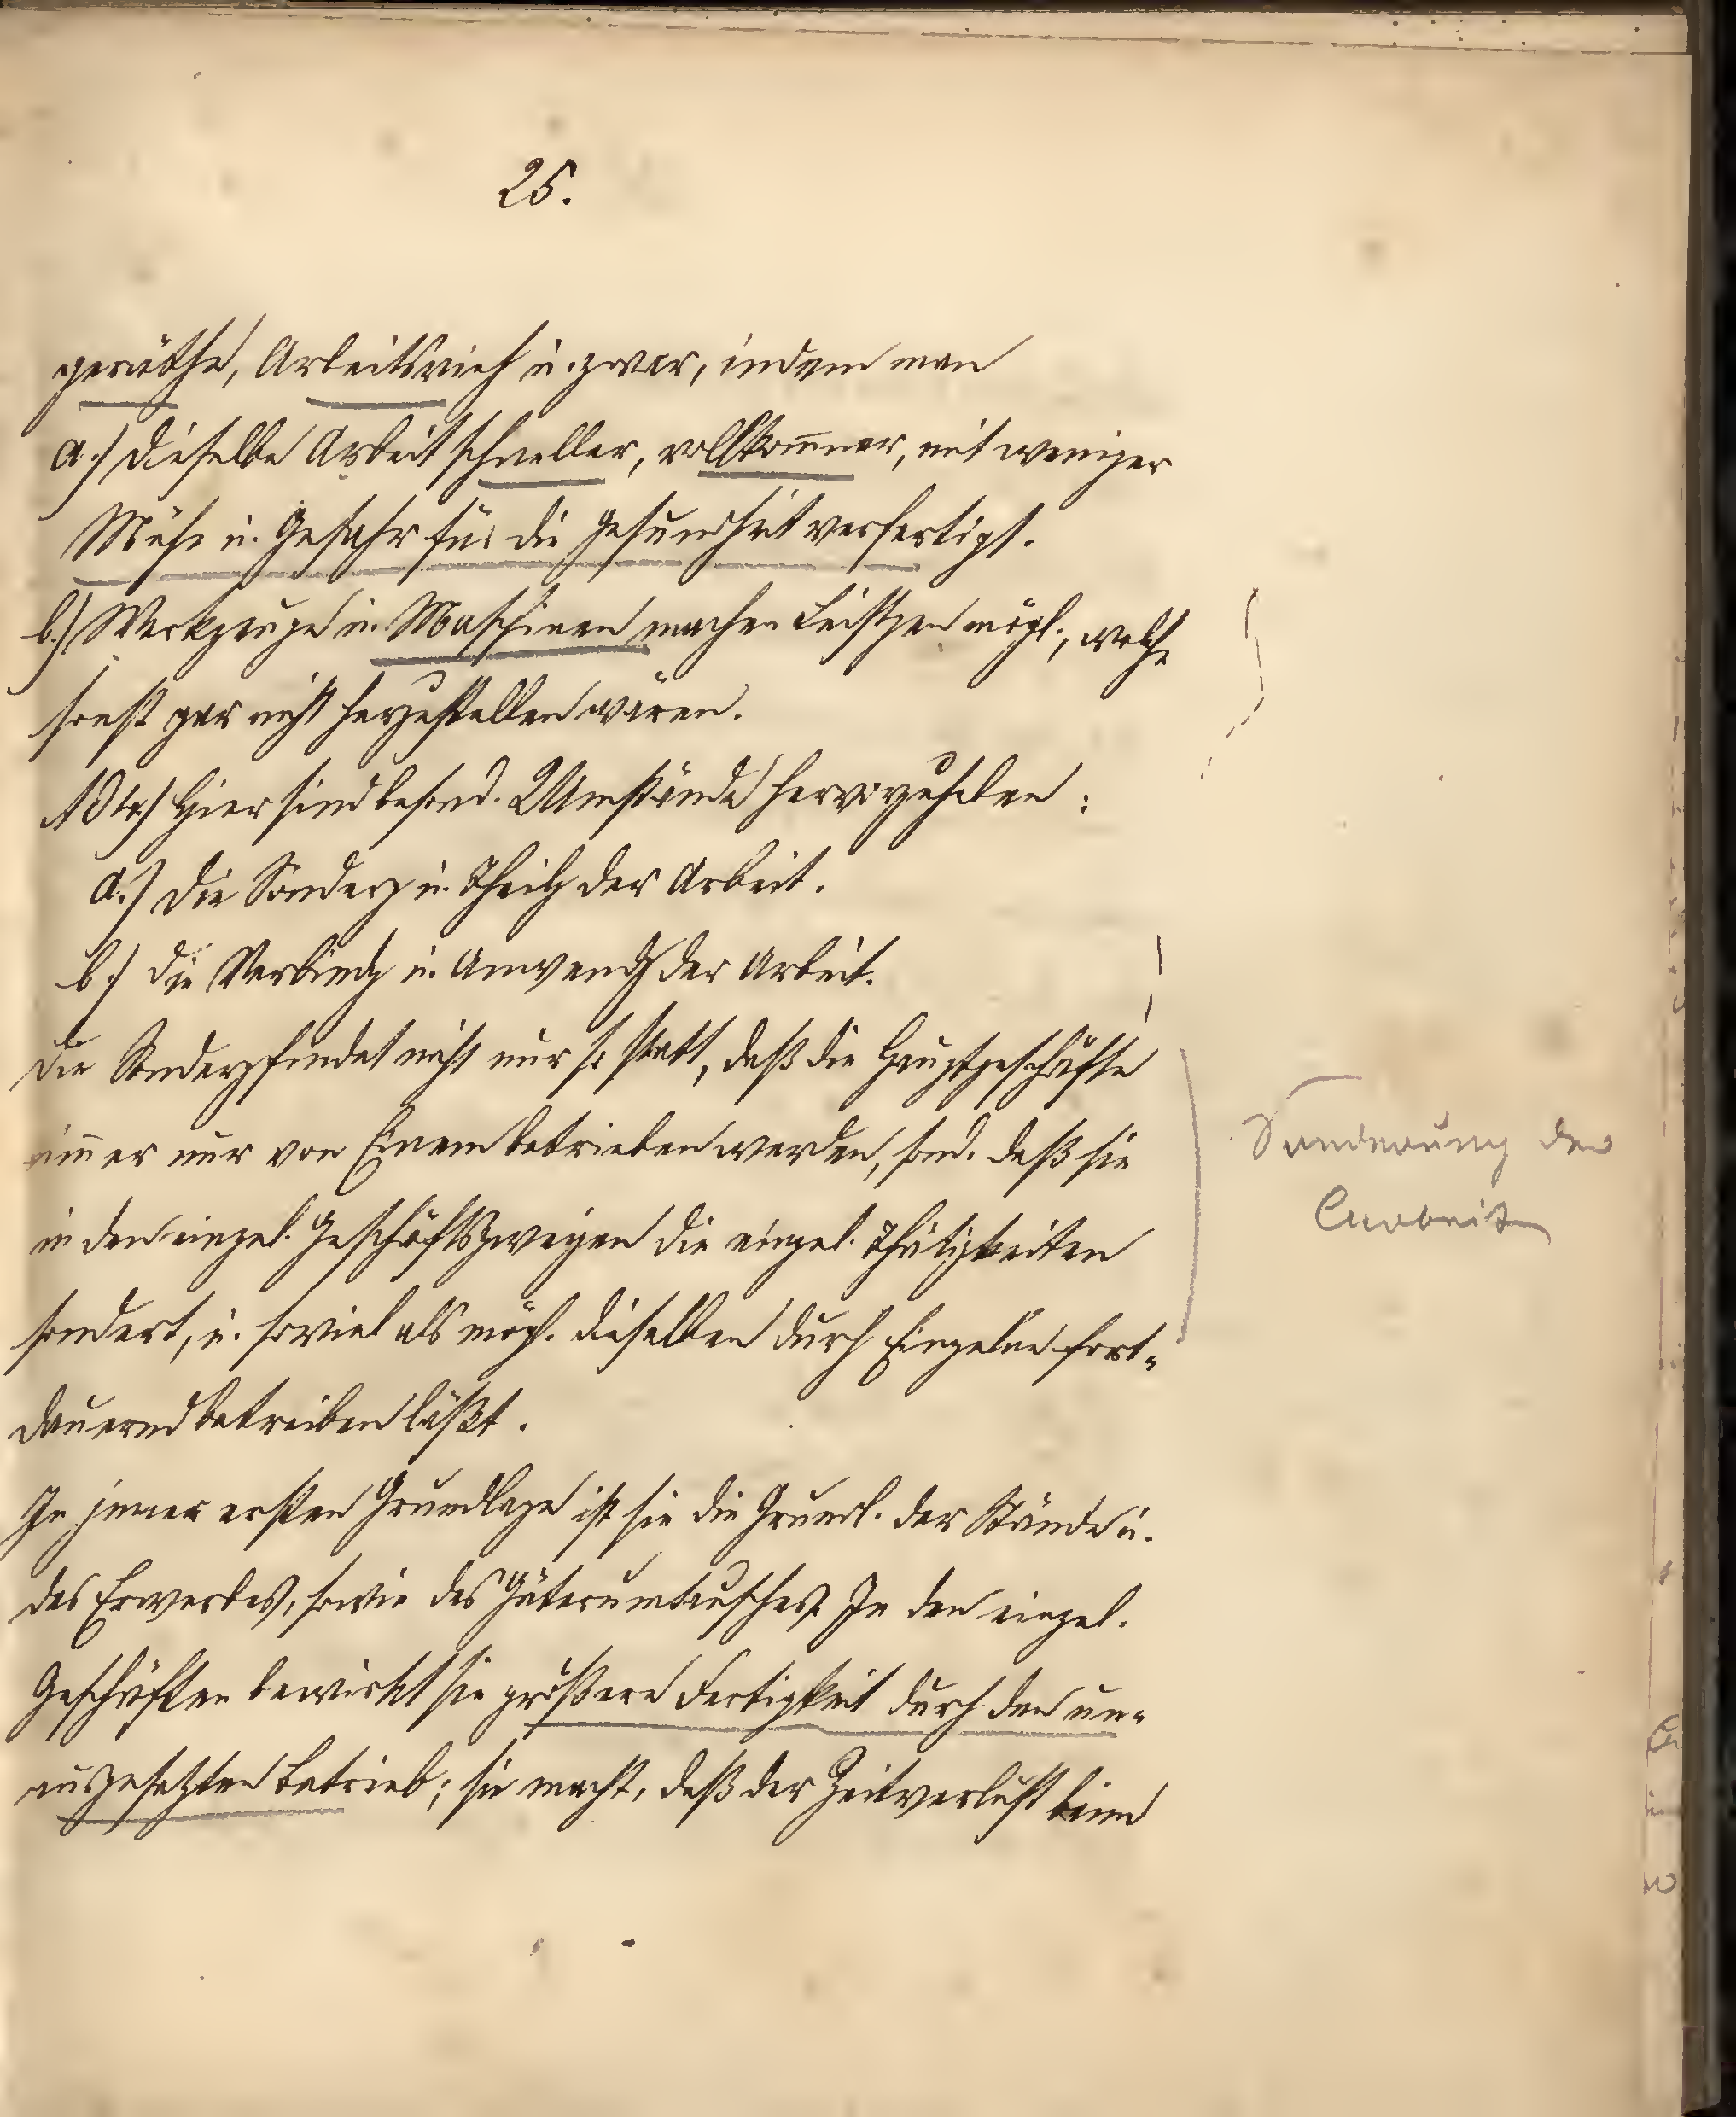 25.
geräthe, Arbeitsvieh u. zwar, indem man
a.) dieselbe Arbeit schneller, vollkom̄ner, mit weniger
Mühe u. Gefahr für die Gesundheit verfertigt.
b.) Werkzeuge u. Maschinen machen Leistgen mögl., welche
sonst gar nicht herzustellen wären.
Hier sind besond. 2 Umstände hervorzuheben:
a.) die Sonderg u. Theilg der Arbeit.
b.) die Verbindg u. Anwendg der Arbeit.
Die Sonderg findet nicht nur so statt, daß die Hauptgeschäfte
im̄er nur von Einem betrieben werden, sond. daß sie
in den einzel. Geschäftszweigen die einzel. Thätigkeiten
sondert, u. soviel als mögl. dieselben durch Einzelne fort-
dauernd betreiben läßt.
In jener ersten Grundlage ist sie die Grundl. der Stände u.
des Erwerbes, sowie des Güterumtausches. In den einzel.
Geschäften bewirkt sie größere Fertigkeit durch den un-
ausgesetzten Betrieb; sie macht, daß der Zeitverlust beim
Sonderung der
Arbeit